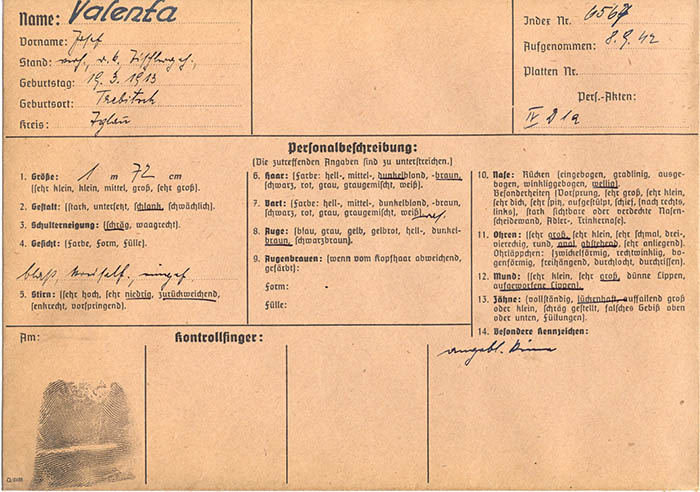 Name: Valenta
Vorname: Josef
Stand:
Geburtstag: 19. 3. 1913
Geburtsort: Trebitsch
Kreis: Iglau
Index Nr. 6567
Aufgenommen: 8. 9. 42
Platten Nr.
Pers.-Akten:
IV D 1a
Personalbeschreibung:
(Die zutreffenden Angaben sind zu unterstreichen.)
1. Größe: 1 m 72 cm
(sehr klein, klein, mittel, groß, sehr groß).
2. Gestalt: (stark, untersetzt, schlank, schwächlich).
3. Schulterneigung: (schräg, waagrecht).
4. Gesicht: (Farbe, Form, Fülle).
blaß,
5. Stirn: (sehr hoch, sehr niedrig, zurückweichend,
senkrecht, vorspringend).
6. Haar: (Farbe: hell-, mittel-, dunkelblond, -braun,
schwarz, rot, grau, graugemischt, weiß).
7. Bart: (Farbe: hell-, mittel-, dunkelblond, -braun,
schwarz, rot, grau, graugemischt, weiß)
8. Auge: (blau, grau, gelb, gelbrot, hell-, dunkel-
braun, schwarzbraun).
9. Augenbrauen: (wenn vom Kopfhaar abweichend,
gefärbt):
Form:
Fülle:
10. Nase: Rücken (eingebogen, gradlinig, ausge-
bogen, winkliggebogen, wellig).
Besonderheiten (Vorsprung, sehr groß, sehr klein,
sehr dick, sehr spitz, aufgestülpt, schief, (nach rechts,
links), stark sichtbare oder verdeckte Nasen-
scheidewand, Adler-, Trinkernase).
11. Ohren: (sehr groß, sehr klein, sehr schmal, drei-,
viereckig, rund, oval abstehend, sehr anliegend).
Ohrläppchen: (zwickelförmig, rechtwinklig, bo-
genförmig, freihängend, durchlocht, durchrissen).
12. Mund: (sehr klein, sehr groß, dünne Lippen,
aufgeworfene Lippen).
13. Zähne: (vollständig, lückenhaft, auffallend groß
oder klein, schräg gestellt, falsches Gebiß oben
oder unten, Füllungen).
14. Besondere Kennzeichen:
angebl. keine
Am:
Kontrollfinger: